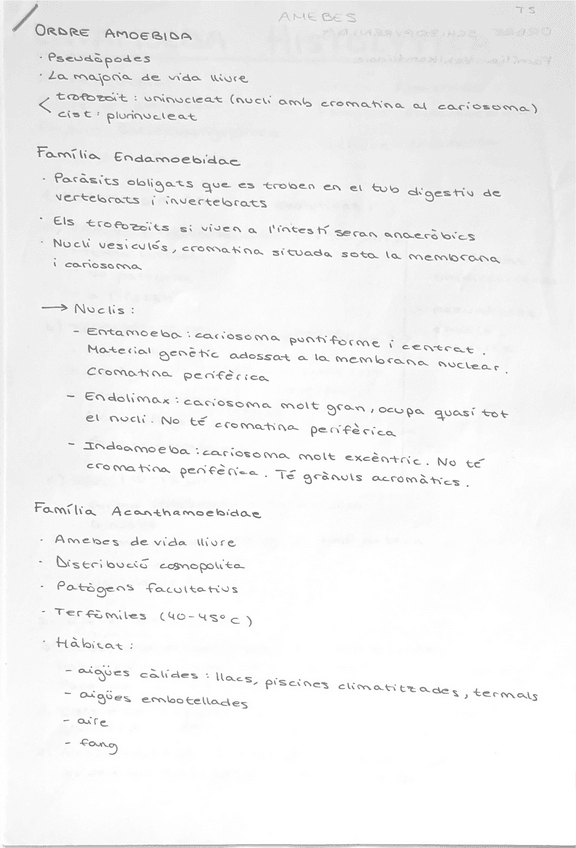 AMEBES
T5
ORDRE AMOEBIDA
· Pseudòpodes
· La majoria de vida lliure
< trofozoït : uninucleat (nucli amb cromatina al cariosoma)
cist : plurinucleat
Família Endamoebidae
· Paràsits obligats que es troben en el tub digestiu de
vertebrats i invertebrats
· Els trofozoïts si viuen a l'intestí seran anaeròbics
· Nucli vesiculós, cromatina situada sota la membrana
i cariosoma
→ Nuclis :
- Entamoeba : cariosoma puntiforme i centrat.
Material genètic adossat a la membrana nuclear.
Cromatina perifèrica
- Endolimax : cariosoma molt gran, ocupa quasi tot
el nucli. No té cromatina perifèrica
- Indoamoeba : cariosoma molt excèntric. No té
cromatina perifèrica. Té grànuls acromàtics.
Família Acanthamoebidae
· Amebes de vida lliure
· Distribució cosmopolita
· Patògens facultatius
· Terfòmiles (40-45°C)
· Hàbitat :
- aigües càlides : llacs, piscines climatitzades, termals
- aigües embotellades
- aire
- fang